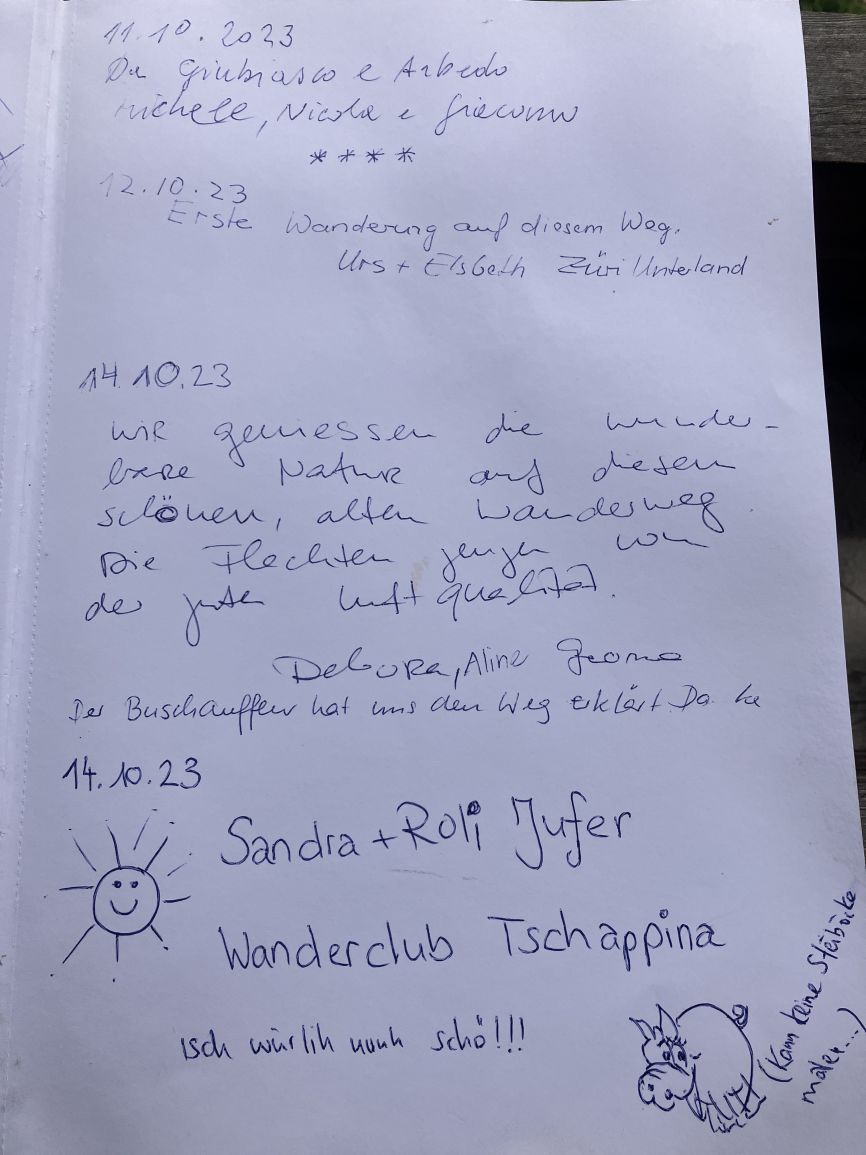 11.10.2023
Da Giubiasco e Arbedo
Michele, Nicola e Giacomo
****
12.10.23
Erste Wanderung auf diesem Weg.
Urs + Elsbeth Züri Unterland
14.10.23
Wir geniessen die wunder-
bare Natur auf diesem
schönen, alten Wanderweg
Die Flechten zeugen von
der guten Luftqualität.
Debora, Aline
Der Buschauffeur hat uns den Weg erklärt.
14.10.23
Sandra + Roli Jufer
Wanderclub Tschappina
isch würlih schö!!!
(Kann keine Steiböcke
malen...)